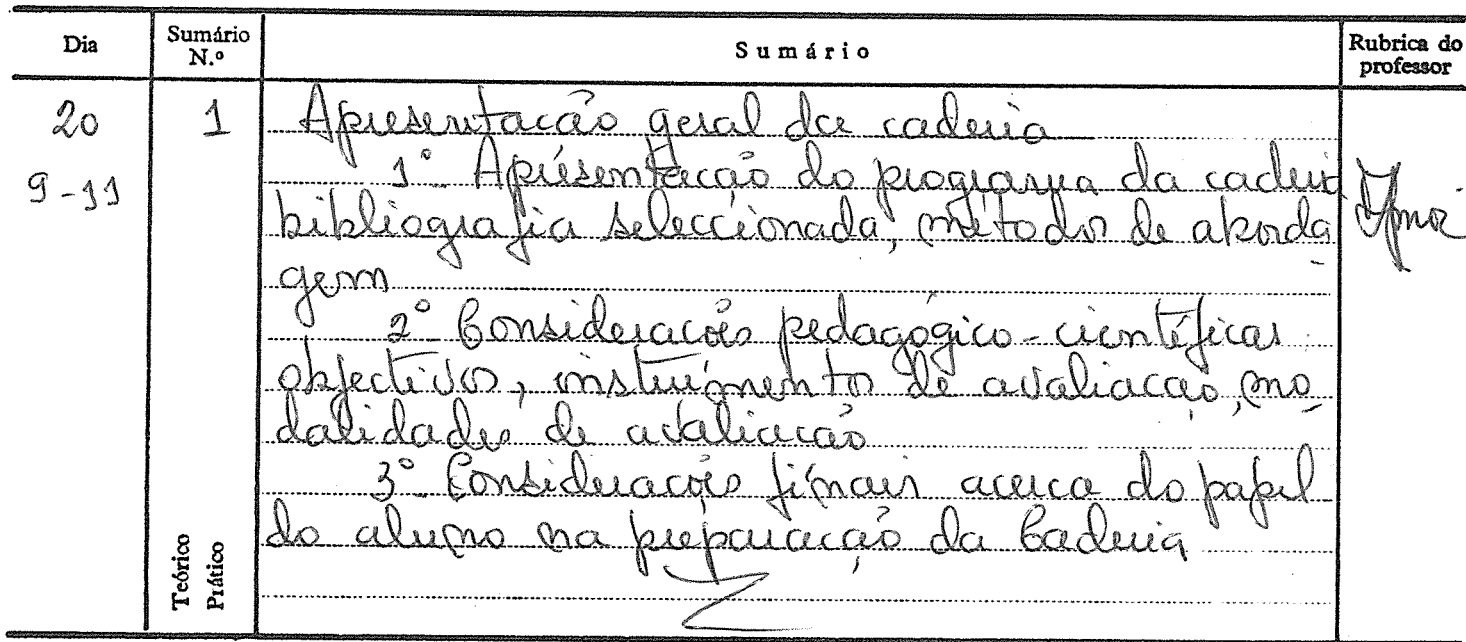 Dia
Sumário N.º
Sumário
Rubrica do professor
20
1
Apresentação geral da cadeira
9-11
1º Apresentação do programa da cadeira
bibliografia seleccionada, métodos de aborda
gem
2º Considerações pedagógico-científicas
objectivos, instrumentos de avaliação, mo
dalidades de avaliação
3º Considerações finais acerca do papel
do aluno na preparação da Cadeira
Teórico
Prático